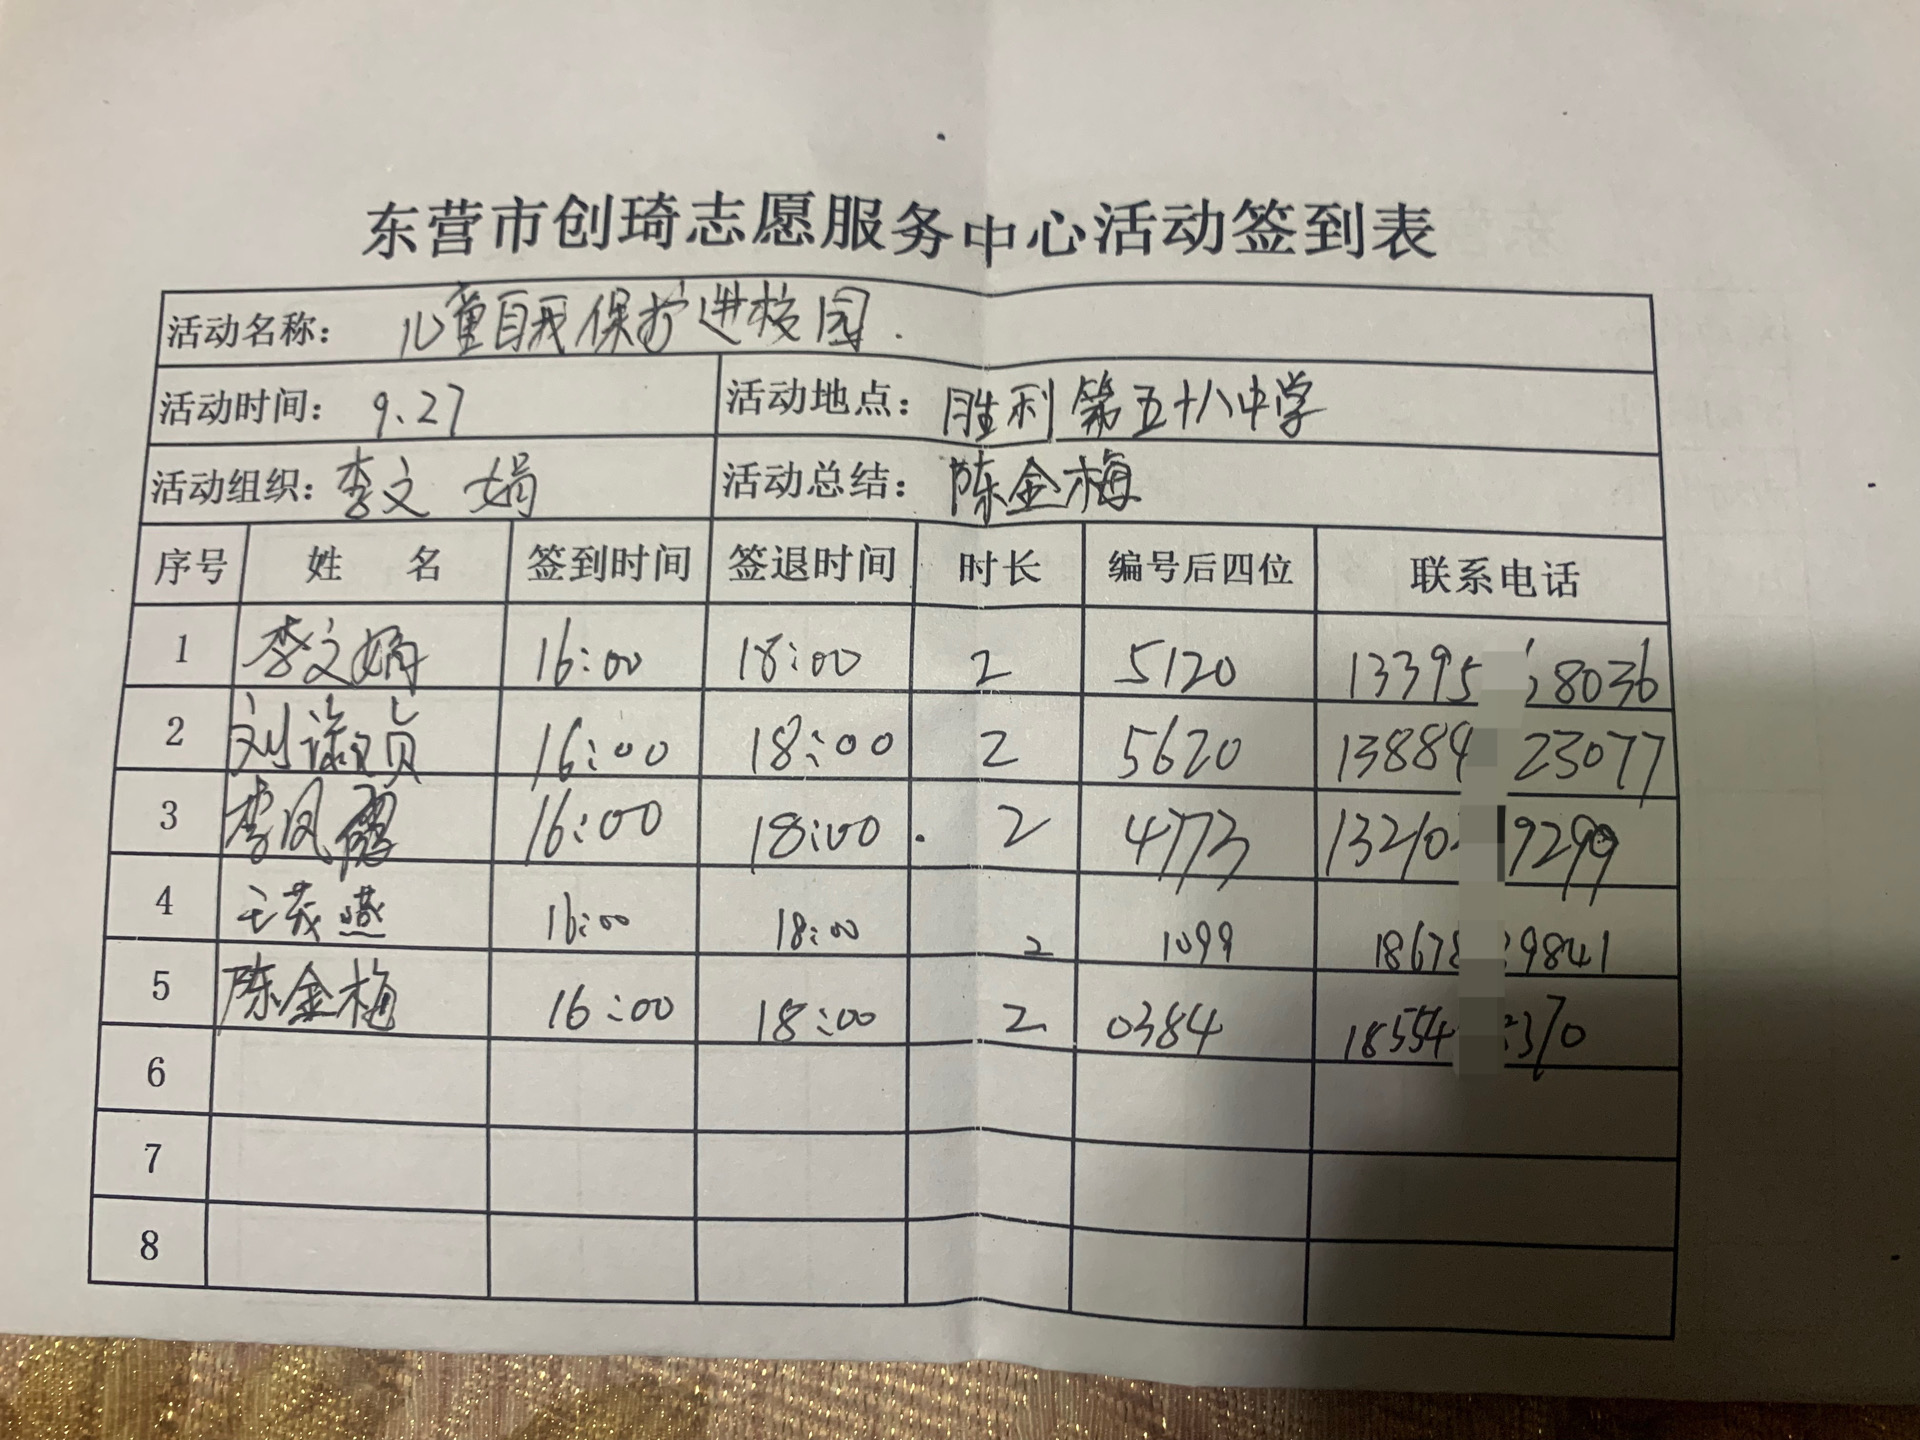 东营市创琦志愿服务中心活动签到表
活动名称： 儿童自我保护进校园.
活动时间： 9.27 活动地点： 胜利第五十八中学
活动组织： 李文娟 活动总结： 陈金梅
序号 姓 名 签到时间 签退时间 时长 编号后四位 联系电话
1 李文娟 16:00 18:00 2 5120 13395 8036
2 刘淑贞 16:00 18:00 2 5620 13884 23077
3 李凤霞 16:00 18:00 2 4773 13210 9299
4 王茂燕 16:00 18:00 2 1099 18678 9841
5 陈金梅 16:00 18:00 2 0384 18554 2370
6
7
8